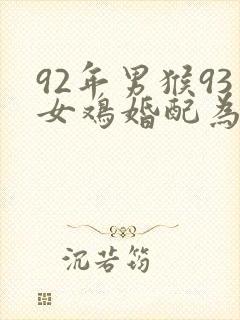 92年男猴93
女鸡婚配为
沉若筠